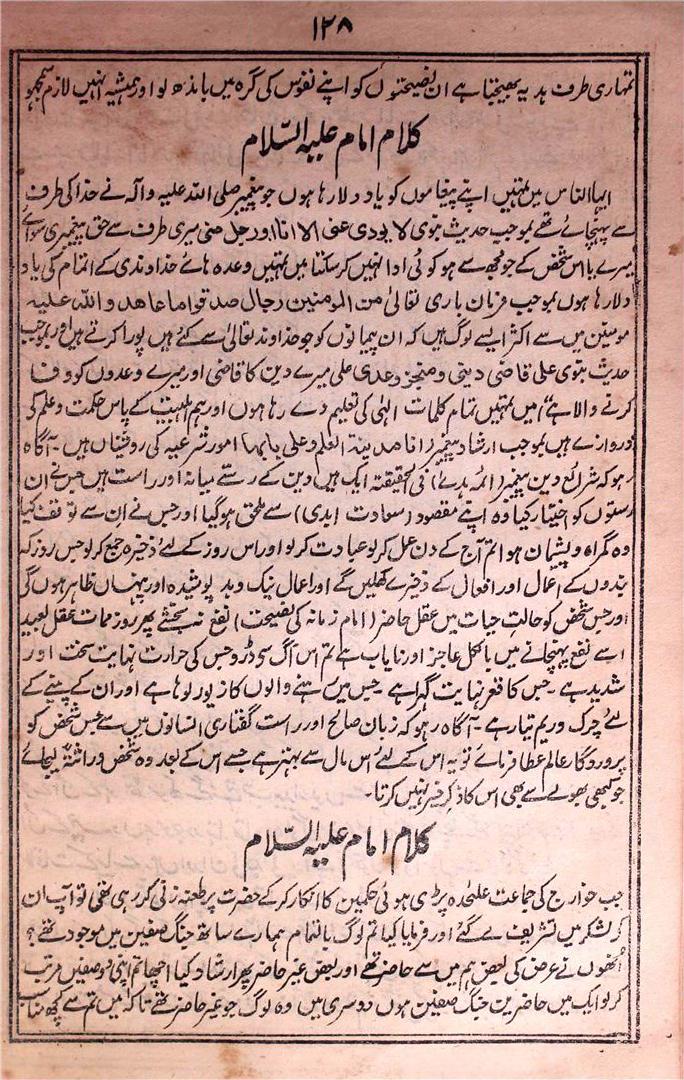 ۱۲۸
تمہاری طرف ہدیہ بھیجتا ہے ان نصیحتوں کو اپنے نفوس کی گرہ میں باندھ لو اور ہمیشہ انہیں لازم سمجھو
کلام امام علیہ السّلام
ایہا الناس میں تمہیں اپنے پیغاموں کو یاد دلا رہا ہوں جو پیغمبر صلی اللہ علیہ و آلہ نے خدا کی طرف
سے پہنچائے تھے بموجب حدیث نبوی لا یودی عنی الا انا اور رجل منی میری طرف سے حق پیغمبری سوائے
میرے یا اس شخص کے جو مجھ سے ہو کوئی ادا نہیں کر سکتا میں تمہیں وعدہ ہائے خداوندی کے اتمام کی یاد
دلا رہا ہوں بموجب فرمان باری تعالیٰ من المومنین رجال صدقوا ما عاهدوا الله علیه
مومنین میں سے اکثر ایسے لوگ ہیں کہ ان پیمانوں کو جو خداوند تعالیٰ سے کئے ہیں پورا کرتے ہیں اور بموجب
حدیث نبوی علی قاضی دینی و منجز وعدی علی میرے دین کا قاضی اور میرے وعدوں کو وفا
کرنے والا ہے" میں تمہیں تمام کلمات الہٰی کی تعلیم دے رہا ہوں اور ہم اہلبیت کے پاس حکمت و علم کے
دروازے ہیں بموجب ارشاد پیغمبر (انا مدینة العلم وعلی بابها) امور شرعیہ کی روشنیاں ہیں۔ آگاہ
رہو کہ شرائع دین پیغمبر (ائمہ ہدےٰ) فی الحقیقتہ ایک ہیں دین کے رستے میانہ اور راست ہیں جس نے ان
رستوں کو اختیار کیا وہ اپنے مقصود (سعادت ابدی) سے ملحق ہو گیا اور جس نے ان سے توقف کیا
وہ گمراہ و پشیمان ہوا تم آج کے دن عمل کر لو عبادت کر لو اور اس روز کے لئے ذخیرہ جمع کر لو جس روز کہ
بندوں کے اعمال اور افعال کے ذخیرے کھلیں گے اور اعمال نیک و بد پوشیدہ اور پنہاں ظاہر ہوں گی
اور جس شخص کو حالت حیات میں عقل حاضر (امام زمانہ کی نصیحت) نفع نہ بخشے پھر روز ممات عقل بعید
اسے نفع پہنچانے میں بالکل عاجز اور نایاب ہے تم اس آگ سے ڈرو جس کی حرارت نہایت سخت اور
شدید ہے۔ جس کا قعر نہایت گہرا ہے۔ جس میں رہنے والوں کا زیور لوہا ہے اور ان کے پینے کے
لئے چرک و ریم تیار ہے۔ آگاہ رہو کہ زبان صالح اور راست گفتاری انسانوں میں سے جس شخص کو
پروردگار عالم عطا فرمائے تو یہ اس کے لئے اس مال سے بہتر ہے جسے اس کے بعد وہ شخص وراثتہً لیجائے
جو کبھی بھولے سے بھی اس کا ذکر خیر نہیں کرتا۔
کلام امام علیہ السّلام
جب خوارج کی جماعت علیٰحدہ پڑی ہوئی حکمین کا انکار کر کے حضرت پر طعنہ زنی کر رہی تھی تو آپ ان
کے لشکر میں تشریف لے گئے اور فرمایا کیا تم لوگ بالتمام ہمارے ساتھ جنگ صفین میں موجود تھے؟
اُنھوں نے عرض کی بعض ہم میں سے حاضر تھے اور بعض غیر حاضر پھر ارشاد کیا اچھا تم اپنی دو صفیں مرتب
کر لو ایک میں حاضرین جنگ صفین ہوں دوسری میں وہ لوگ جو غیر حاضر تھے تاکہ میں تم سے کچھ مناسب